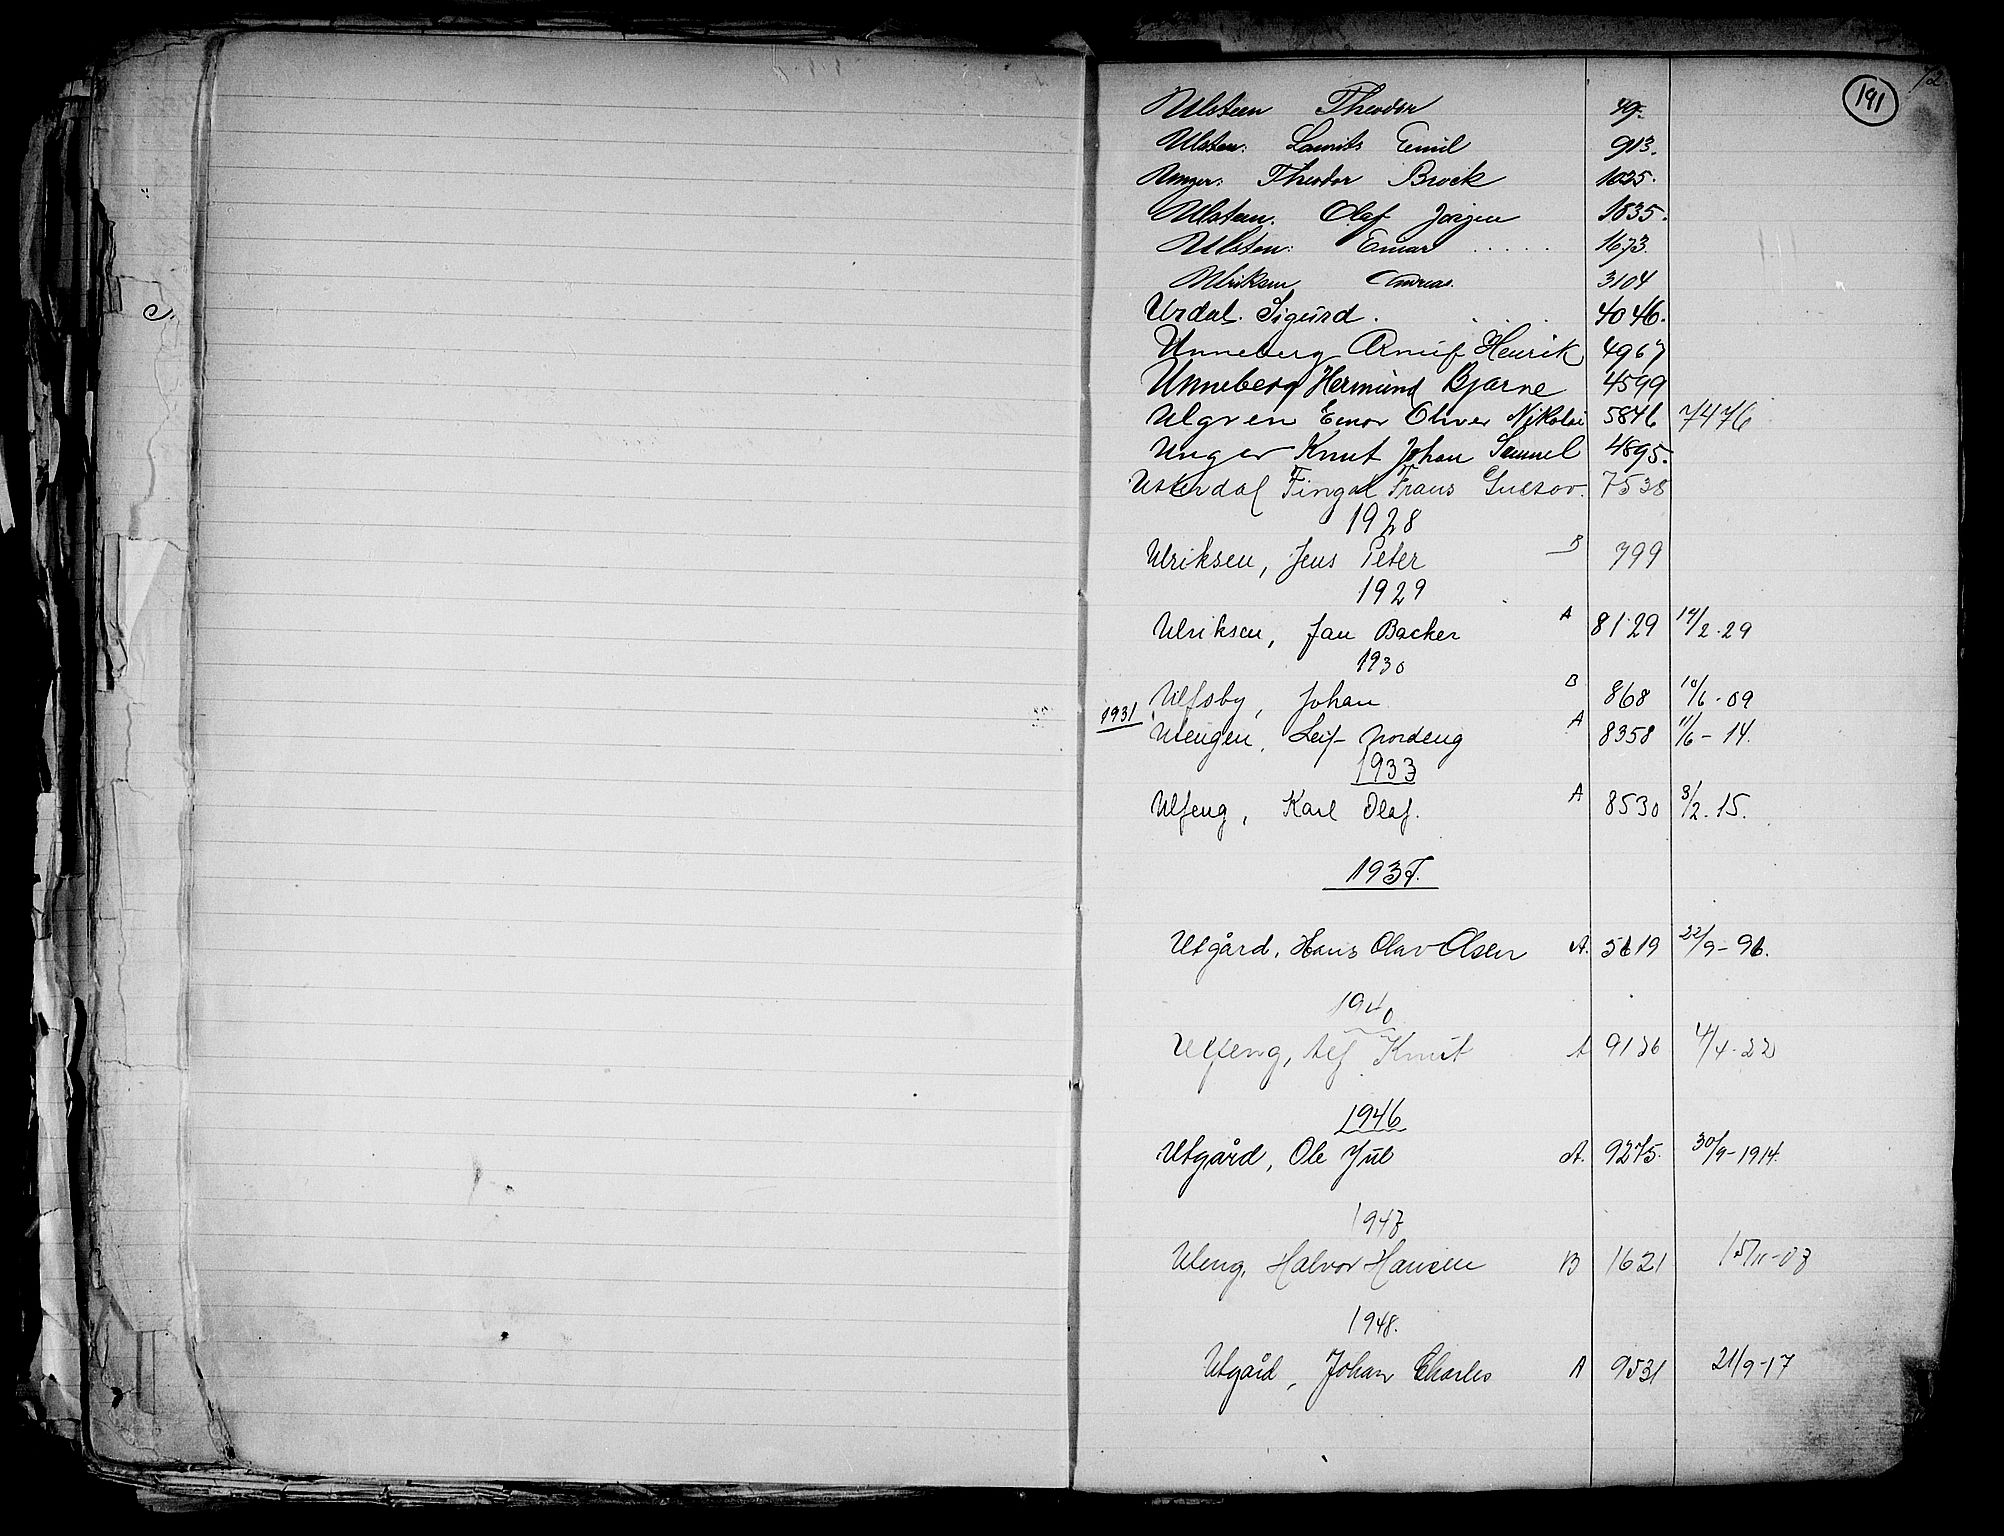 191
Ulsteen Theodor 49.
Ulsten: Lauritz Emil 913.
Unger: Theodor Brock 1025.
Ulsteen. Olaf Jörgen 1835.
Ulsten: Einar . . . . . 1673.
Ulriksen Andreas. 3104
Urdal. Sigurd . . . 4046.
Unneberg Arnulf Henrik 4967
Unneberg Hermund Bjarne 4599
Ulgren Einor Oliver Nikolai 5846 7476
Unger Knut Johan Samuel 4895.
Uskerdal Fingal Frans Gustav. 7538
1928
Ulriksen, Jens Peter B 799
1929
Ulriksen, Jan Backer A 8129 14/2.29
1930
Ulfsby, Johan B 868 10/6-09
1931 Ulengen, Leif Nordeng A 8358 11/6-14.
1933
Ulfeng, Karl Olaf. A 8530 3/2.15.
1937.
Utgård, Hans Olav Olsen A. 5619 22/9-96.
1940
Ulfeng, Alf Knut A 9126 4/4.22
1946
Utgård, Ole Jul A. 9275. 30/9-1914.
1947
Uleng, Halvor Hansen B 1621 15/11-07
1948.
Utgård, Johan Charles A 9531 21/9-17